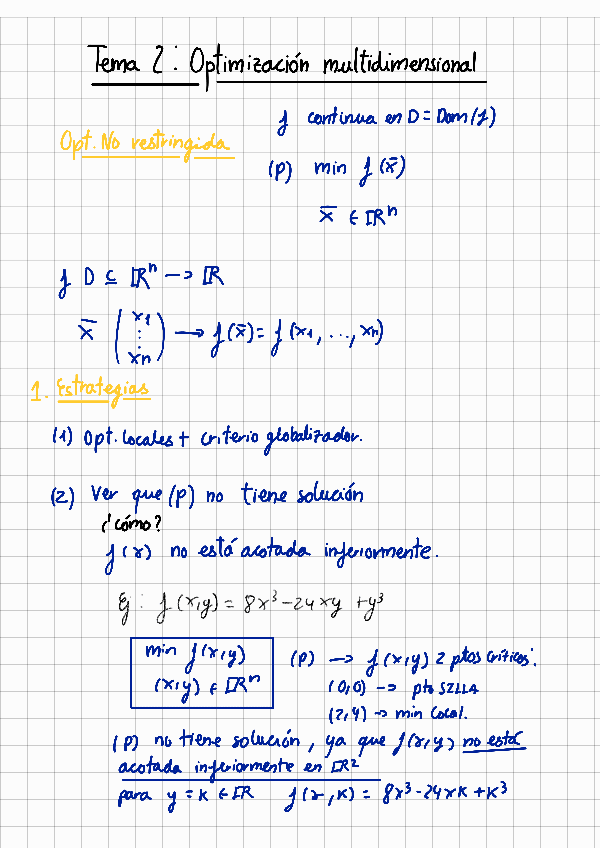 Tema 2: Optimización multidimensional
f continua en D = Dom(f)
Opt. No restringida
(P) min f(x̄)
x̄ ∈ ℝⁿ
f D ⊆ ℝⁿ → ℝ
x̄ (x1 ⋮ xn) → f(x̄) = f(x1, ..., xn)
1. Estrategias
(1) Opt. locales + criterio globalizador.
(2) Ver que (P) no tiene solución
¿cómo?
f(x) no está acotada inferiormente.
Ej: f(x,y) = 8x³ - 24xy + y³
min f(x,y) (P) → f(x,y) 2 ptos críticos:
(x,y) ∈ ℝⁿ (0,0) → pto SILLA
(2,4) → min local.
(P) no tiene solución, ya que f(x,y) no está
acotada inferiormente en ℝ²
para y = k ∈ ℝ f(x,k) = 8x³ - 24xk + k³